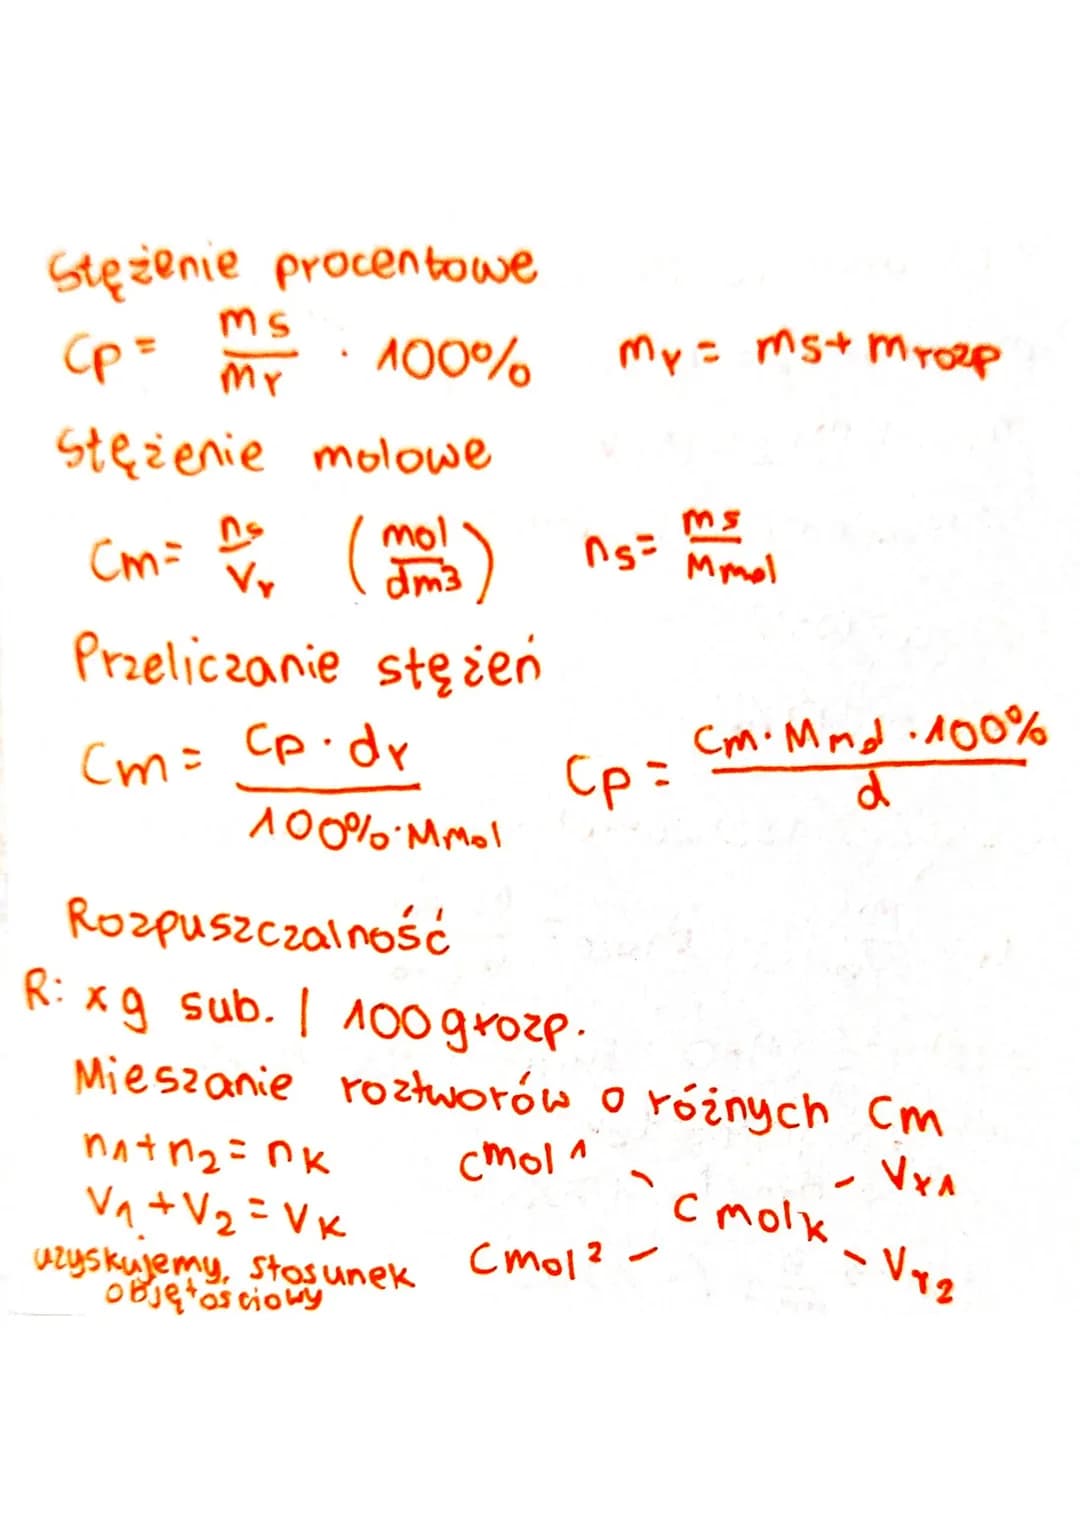 Stężenie procentowe
Cp = ms/mr · 100% mr = ms + mrozp
Stężenie molowe
Cm = ns/Vr (mol/dm3) ns = ms/Mmol
Przeliczanie stężeń
Cm = Cp · dr / 100% · Mmol Cp = Cm · Mmol · 100% / d
Rozpuszczalność
R: x g sub. | 100 g rozp.
Mieszanie roztworów o różnych Cm
n1 + n2 = nk Cmol1 - Vr1
V1 + V2 = Vk Cmolk
uzyskujemy, stosunek Cmol2 - Vr2
objętosciowy